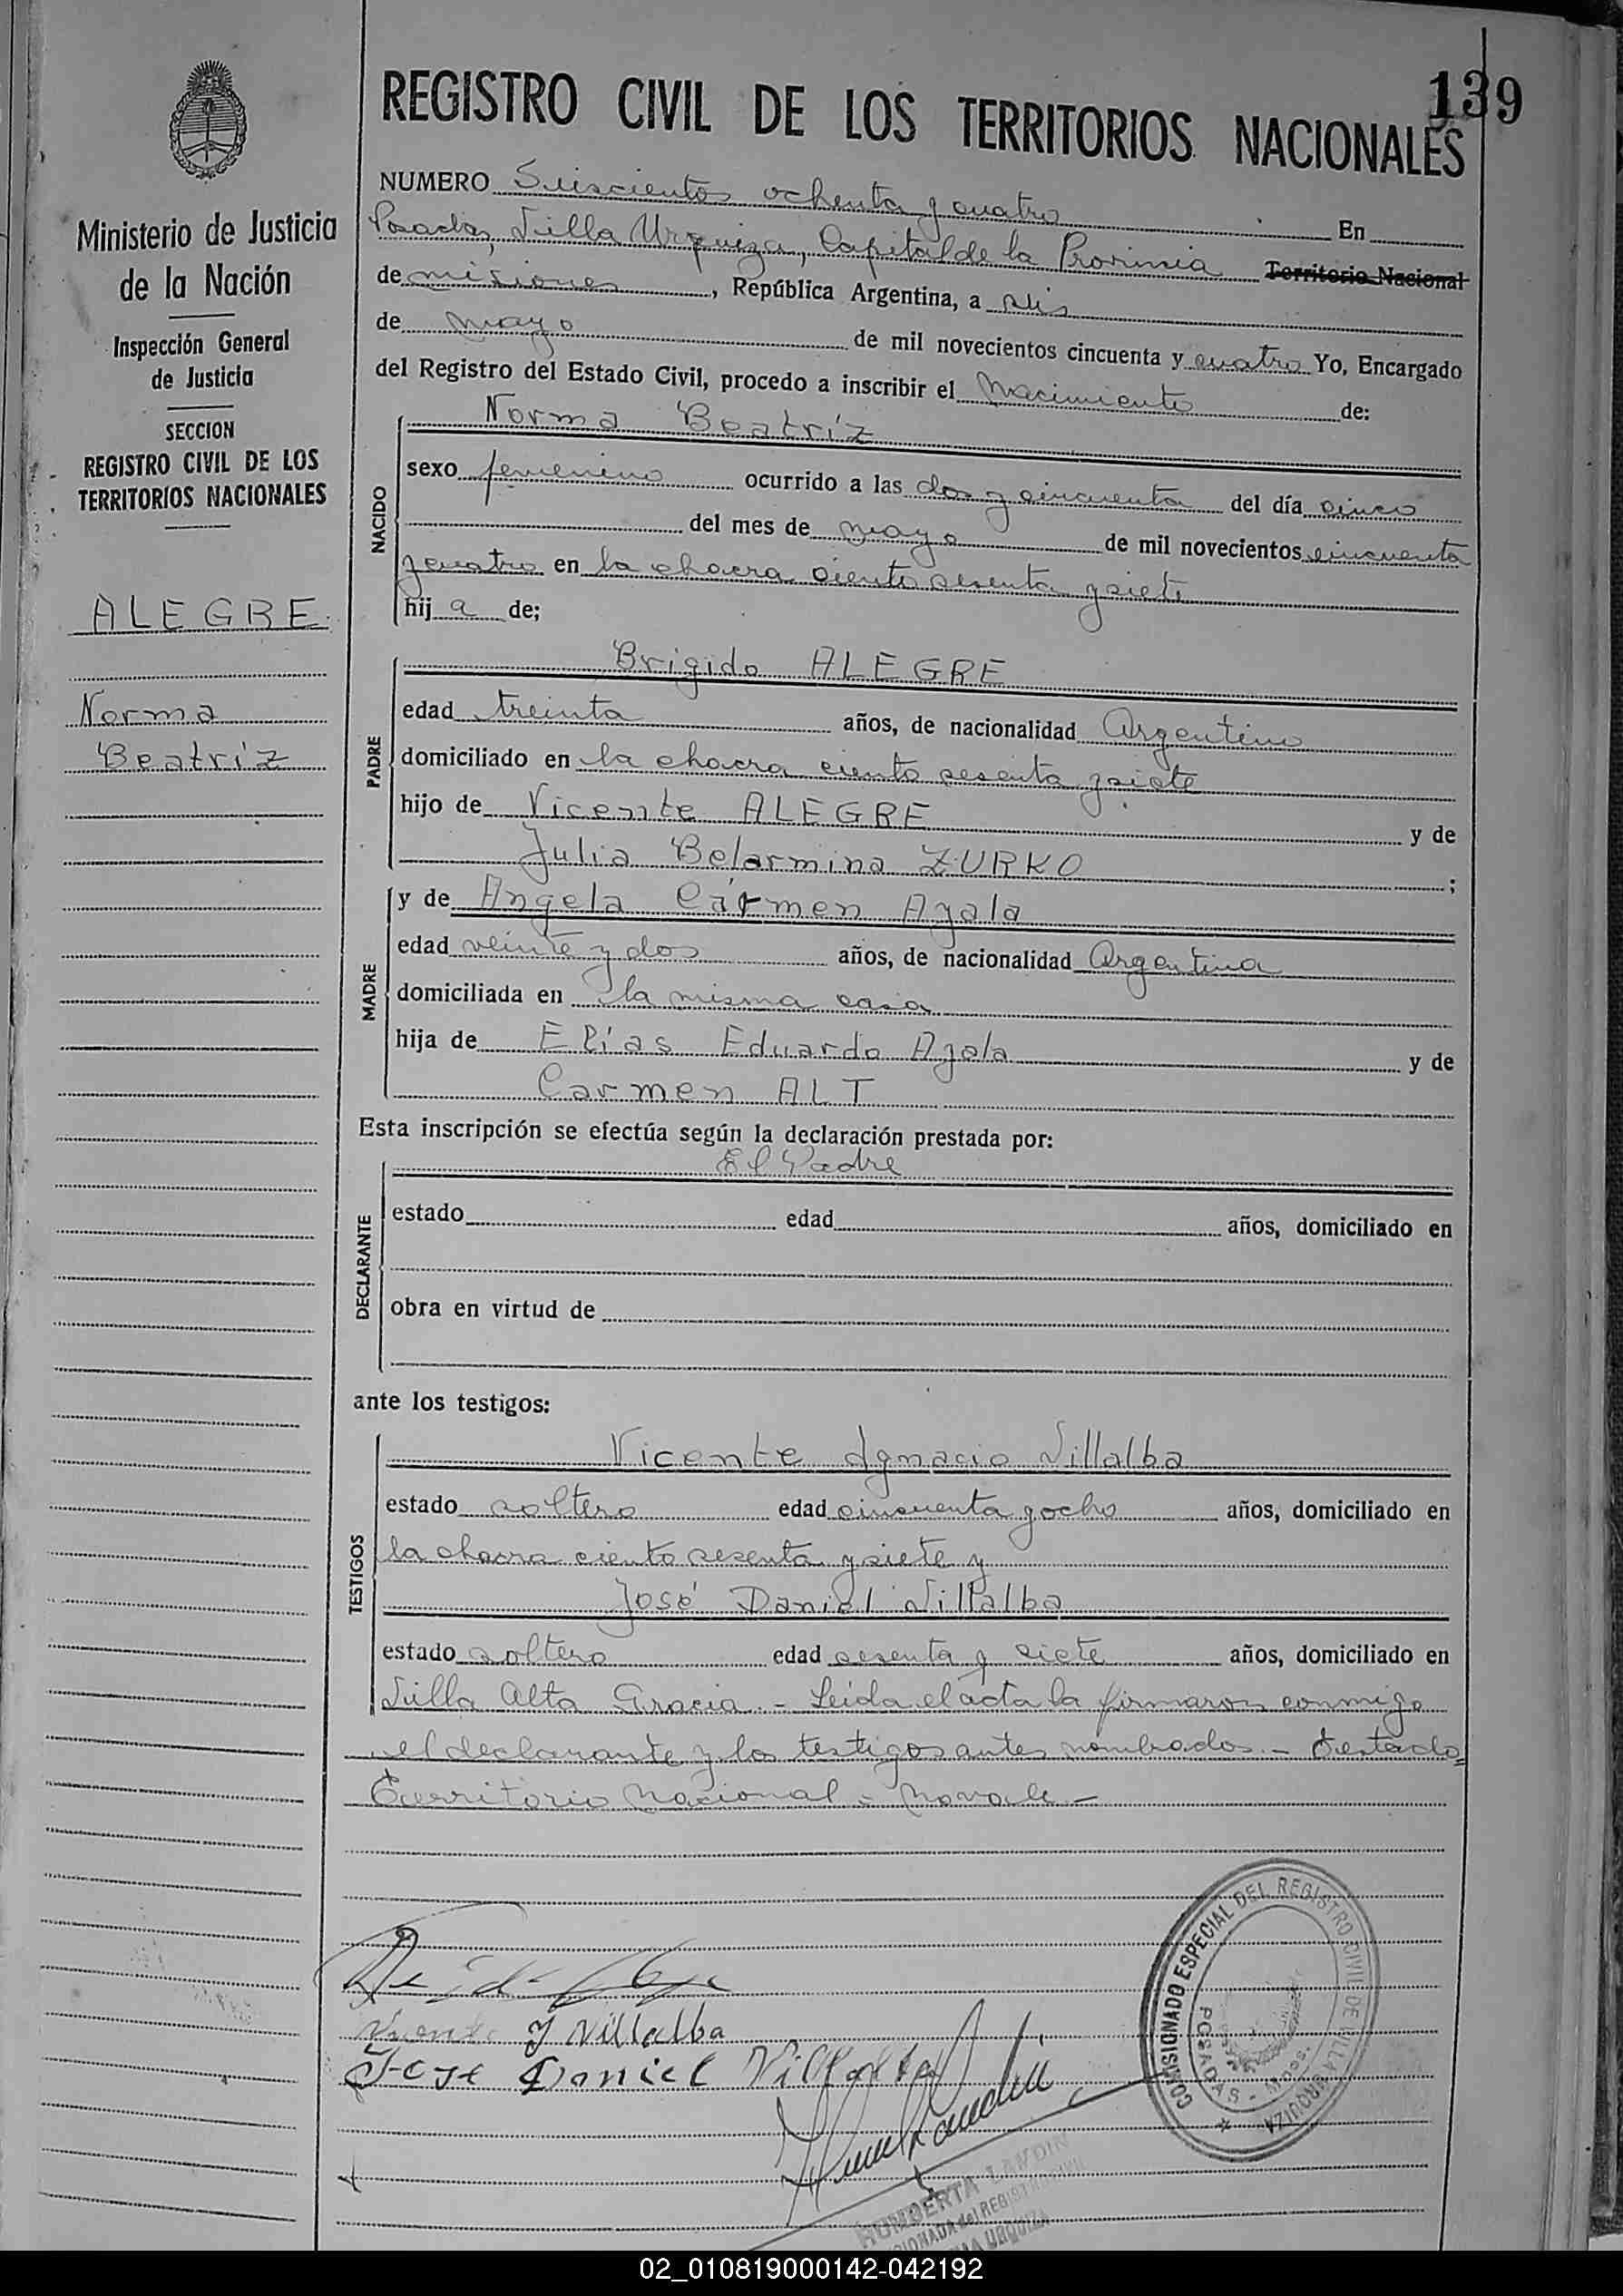 139
REGISTRO CIVIL DE LOS TERRITORIOS NACIONALES
Ministerio de Justicia
de la Nación
Inspección General
de Justicia
SECCION
REGISTRO CIVIL DE LOS
TERRITORIOS NACIONALES
ALEGRE
Norma
Beatríz
NUMERO Seiscientos ochenta y cuatro En
Posadas, Villa Urquiza, Capital de la Provincia Territorio Nacional
de misiones, República Argentina, a seis
de mayo de mil novecientos cincuenta y cuatro Yo, Encargado
del Registro del Estado Civil, procedo a inscribir el Nacimiento de:
NACIDO
Norma Beatríz
sexo femenino ocurrido a las dos y cincuenta del día cinco
del mes de mayo de mil novecientos cincuenta
y cuatro en la chacra ciento sesenta y siete
hij a de;
PADRE
Brigido ALEGRE
edad treinta años, de nacionalidad Argentino
domiciliado en la chacra ciento sesenta y siete
hijo de Vicente ALEGRE y de
Julia Belarmina ZURKO ;
MADRE
y de Angela Cármen Ayala
edad veinte y dos años, de nacionalidad Argentina
domiciliada en la misma casa
hija de Elías Eduardo Ayala y de
Carmen ALT
Esta inscripción se efectúa según la declaración prestada por:
DECLARANTE
El Padre
estado edad años, domiciliado en
obra en virtud de
ante los testigos:
TESTIGOS
Vicente Ignacio Villalba
estado soltero edad cincuenta y ocho años, domiciliado en
la chacra ciento sesenta y siete y
José Daniel Villalba
estado soltero edad sesenta y siete años, domiciliado en
Villa Alta Gracia.- Leída el acta la firmaron conmigo
el declarante y los testigos antes nombrados.- Testado=
Territorio Nacional - No vale -
Vicente I Villalba
Jose Daniel Villalba
COMISIONADO ESPECIAL DEL REGISTRO CIVIL DE VILLA URQUIZA
POSADAS - MISIONES
HUMBERTA LANDIN
COMISIONADA del REGISTRO CIVIL
VILLA URQUIZA
02_010819000142-042192